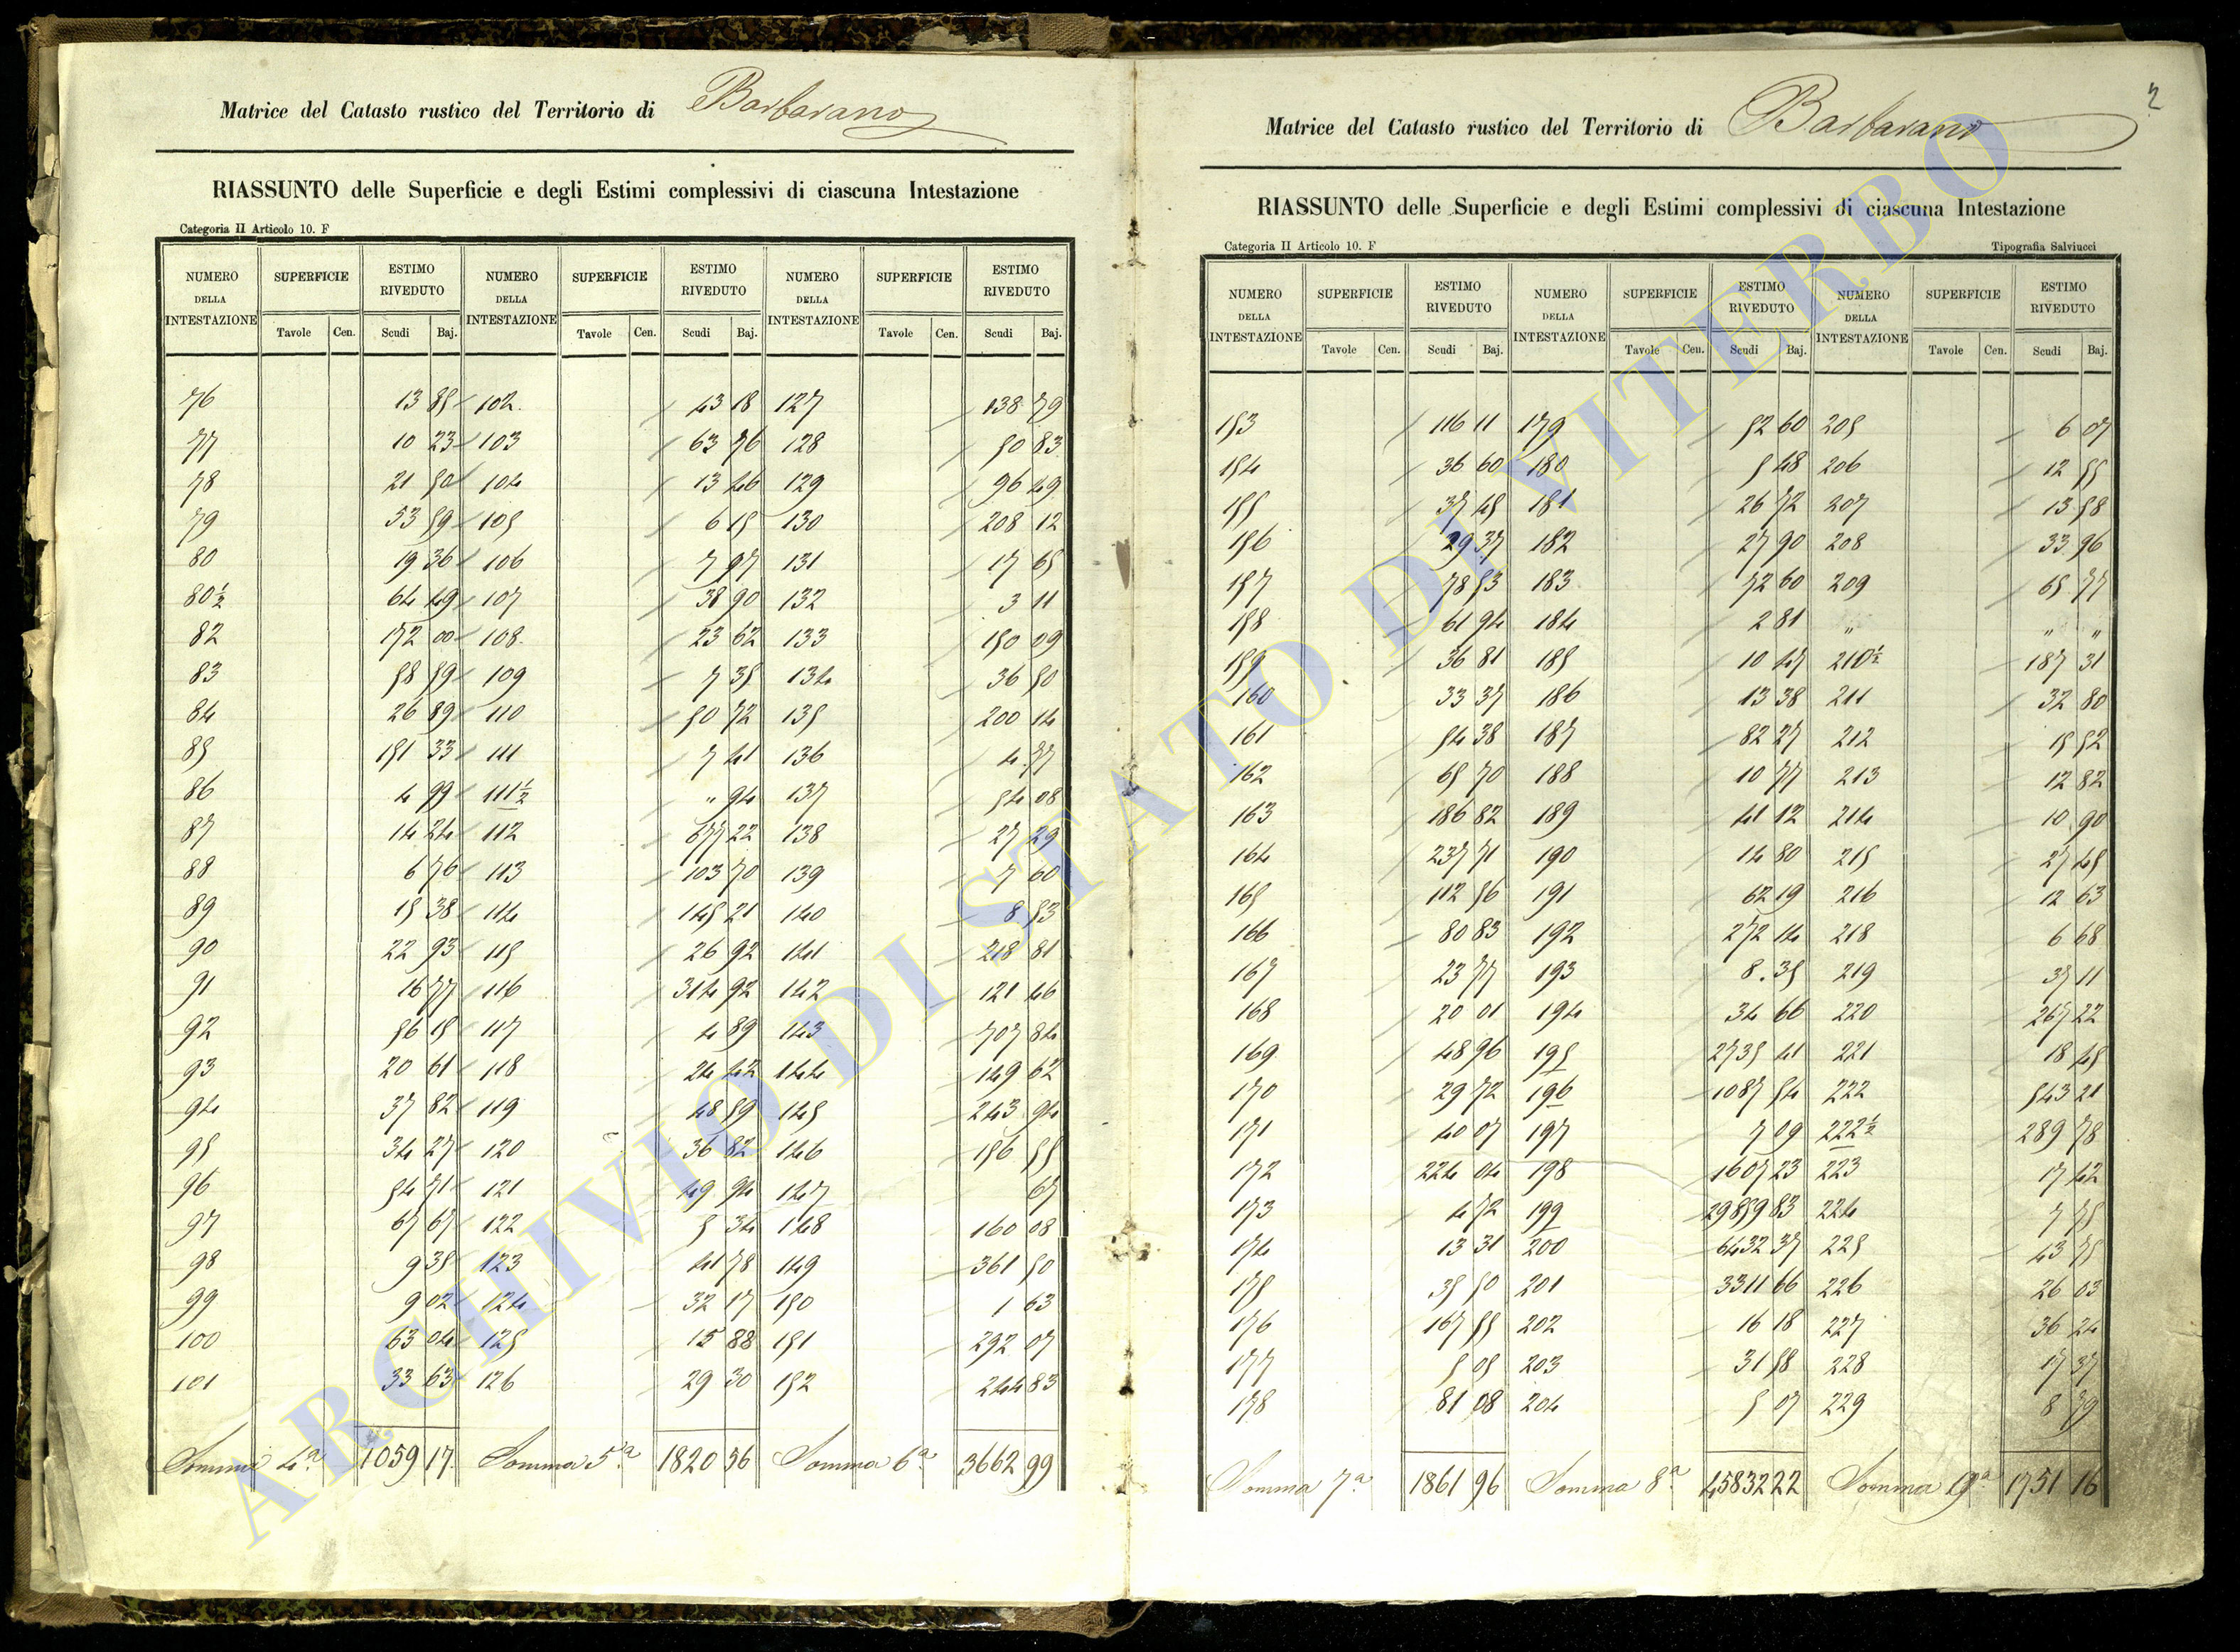 Matrice del Catasto rustico del Territorio di Barbarano
RIASSUNTO delle Superficie e degli Estimi complessivi di ciascuna Intestazione
Categoria II Articolo 10. F
NUMERO DELLA INTESTAZIONE SUPERFICIE ESTIMO RIVEDUTO NUMERO DELLA INTESTAZIONE SUPERFICIE ESTIMO RIVEDUTO NUMERO DELLA INTESTAZIONE SUPERFICIE ESTIMO RIVEDUTO
Tavole Cen. Scudi Baj. Tavole Cen. Scudi Baj. Tavole Cen. Scudi Baj.
76 13 85 102 43 18 127 138 79
77 10 23 103 63 76 128 50 83
78 21 50 104 13 46 129 96 49
79 53 59 105 6 15 130 208 12
80 19 36 106 7 97 131 17 65
80½ 64 49 107 38 90 132 3 11
82 172 00 108 23 62 133 150 09
83 58 59 109 7 35 134 36 50
84 26 89 110 50 72 135 200 14
85 151 33 111 7 41 136 4 77
86 4 99 111½ " 94 137 54 08
87 14 24 112 677 22 138 27 29
88 6 76 113 103 70 139 7 60
89 15 38 114 145 21 140 8 53
90 22 93 115 26 92 141 218 81
91 16 77 116 314 92 142 121 46
92 56 15 117 4 89 143 707 84
93 20 61 118 24 42 144 149 62
94 37 82 119 48 59 145 243 94
95 34 27 120 36 82 146 156 55
96 54 71 121 49 94 147 67
97 67 67 122 5 34 148 160 08
98 9 35 123 41 78 149 361 50
99 9 02 124 32 17 150 1 63
100 63 04 125 15 88 151 292 07
101 33 63 126 29 30 152 244 83
Somma 4ª 1059 17 Somma 5ª 1820 36 Somma 6ª 3662 99
2
Matrice del Catasto rustico del Territorio di Barbarano
RIASSUNTO delle Superficie e degli Estimi complessivi di ciascuna Intestazione
Categoria II Articolo 10. F Tipografia Salviucci
NUMERO DELLA INTESTAZIONE SUPERFICIE ESTIMO RIVEDUTO NUMERO DELLA INTESTAZIONE SUPERFICIE ESTIMO RIVEDUTO NUMERO DELLA INTESTAZIONE SUPERFICIE ESTIMO RIVEDUTO
Tavole Cen. Scudi Baj. Tavole Cen. Scudi Baj. Tavole Cen. Scudi Baj.
153 116 11 179 52 60 205 6 07
154 36 60 180 5 48 206 12 55
155 37 45 181 26 72 207 13 58
156 29 37 182 27 90 208 33 96
157 78 53 183 72 60 209 65 77
158 61 94 184 2 81 " " "
159 36 81 185 10 47 210½ 187 31
160 33 37 186 13 38 211 32 80
161 54 38 187 82 27 212 15 52
162 65 70 188 10 77 213 12 82
163 186 82 189 41 12 214 10 90
164 237 71 190 14 80 215 27 45
165 112 56 191 62 19 216 12 63
166 80 83 192 272 14 218 6 68
167 23 77 193 8 35 219 37 11
168 20 01 194 34 66 220 267 22
169 48 96 195 2735 41 221 18 45
170 29 72 196 1087 54 222 543 21
171 40 07 197 7 09 222½ 289 78
172 224 04 198 1607 23 223 17 42
173 4 72 199 29859 83 224 7 75
174 13 31 200 6432 37 225 43 75
175 35 50 201 3311 66 226 26 03
176 167 55 202 16 18 227 36 24
177 5 05 203 31 58 228 17 37
178 81 08 204 5 07 229 8 79
Somma 7ª 1861 96 Somma 8ª 45832 22 Somma 9ª 1751 16
ARCHIVIO DI STATO DI VITERBO